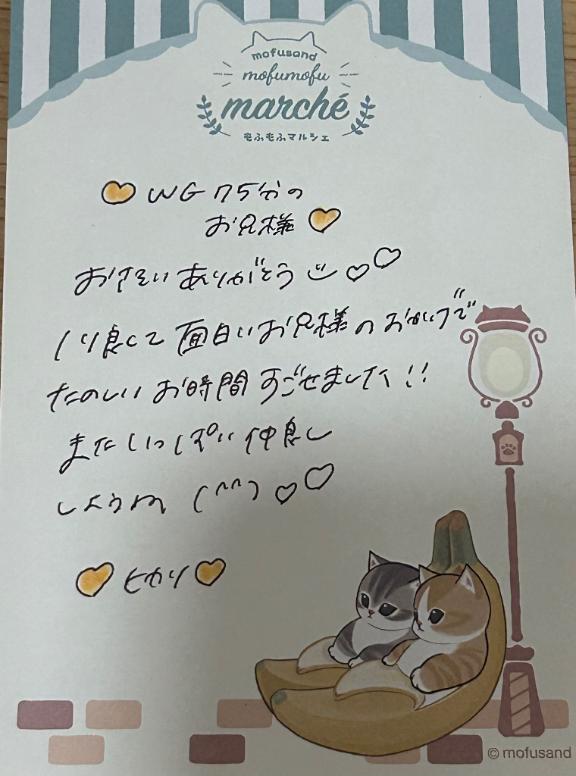 mofusand
mofumofu
marché
もふもふマルシェ
WG 75分の
お兄様
おさそいありがとう
ノリ良くて面白いお兄様のおかげで
たのしいお時間すごせました!!
またいっぱい仲良し
しようね (^^)
ヒカリ
© mofusand